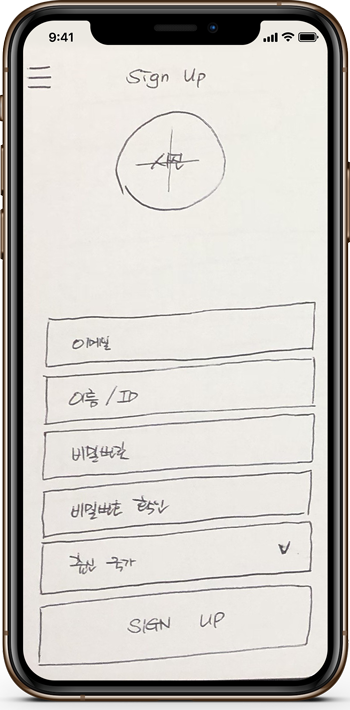 9:41
Sign Up
사진
이메일
이름 / ID
비밀번호
비밀번호 확인
출신 국가
SIGN UP